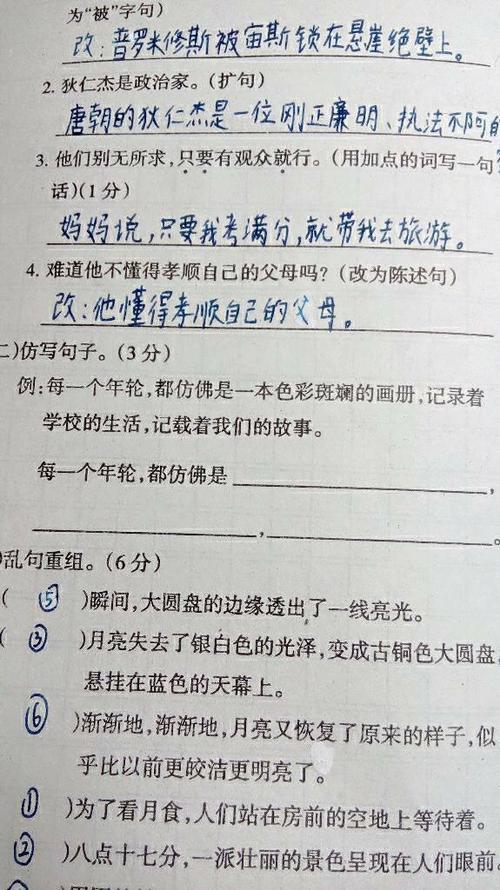 为“被”字句)
改:普罗米修斯被宙斯锁在悬崖绝壁上。
2. 狄仁杰是政治家。(扩句)
唐朝的狄仁杰是一位刚正廉明、执法不阿的
3. 他们别无所求,只要有观众就行。(用加点的词写一句
话)(1分)
妈妈说,只要我考满分,就带我去旅游。
4. 难道他不懂得孝顺自己的父母吗?(改为陈述句)
改:他懂得孝顺自己的父母。
二)仿写句子。(3分)
例:每一个年轮,都仿佛是一本色彩斑斓的画册,记录着
学校的生活,记载着我们的故事。
每一个年轮,都仿佛是 ,
,。
)乱句重组。(6分)
( ⑤ )瞬间,大圆盘的边缘透出了一线亮光。
( ③ )月亮失去了银白色的光泽,变成古铜色大圆盘,
悬挂在蓝色的天幕上。
⑥ )渐渐地,渐渐地,月亮又恢复了原来的样子,似
乎比以前更皎洁更明亮了。
① )为了看月食,人们站在房前的空地上等待着。
② )八点十七分,一派壮丽的景色呈现在人们眼前